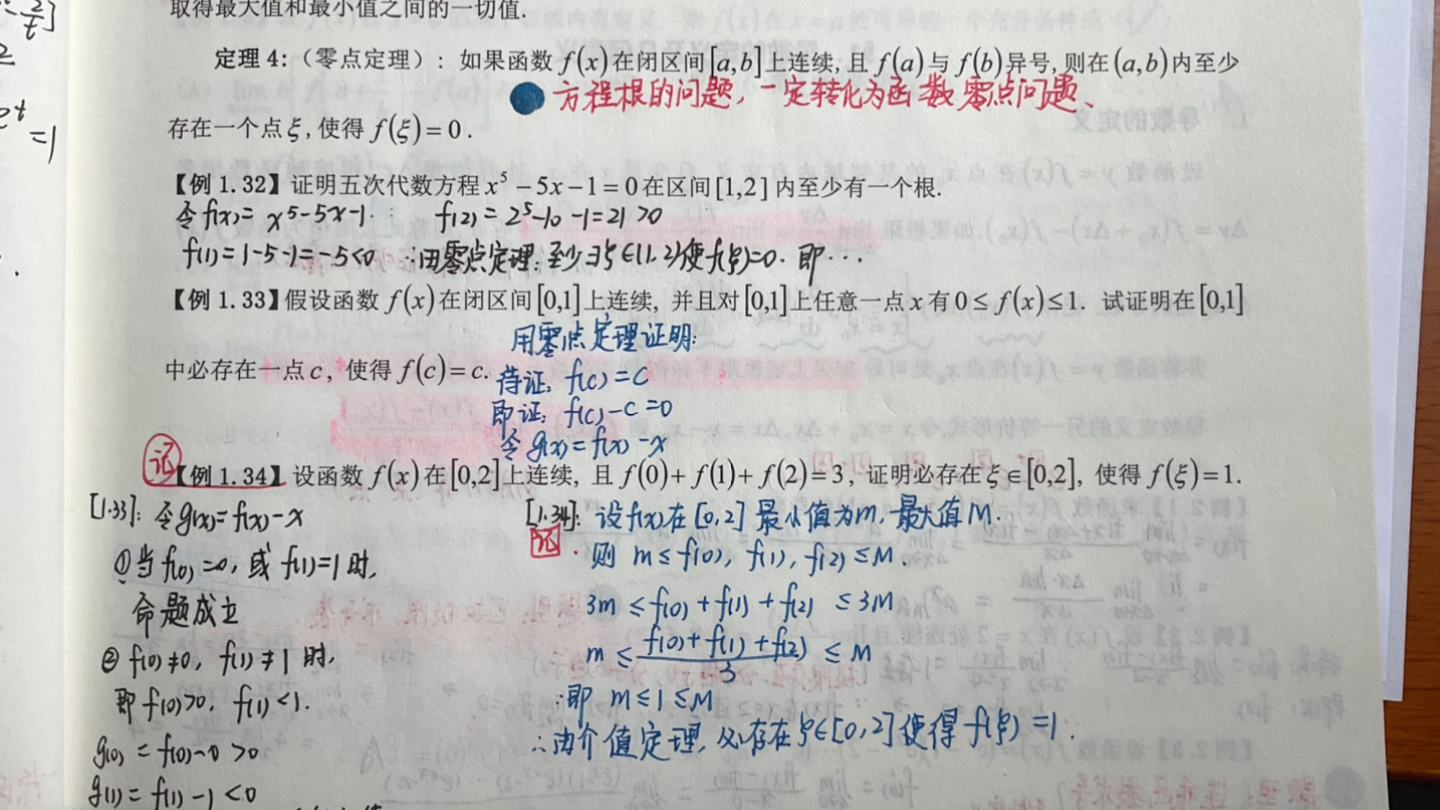 取得最大值和最小值之间的一切值.
定理4:（零点定理）: 如果函数 f(x) 在闭区间[a,b]上连续, 且 f(a) 与 f(b) 异号, 则在(a,b)内至少
方程根的问题，一定转化为函数零点问题、
存在一个点ξ, 使得 f(ξ)=0.
et
=1
【例 1.32】证明五次代数方程 x⁵-5x-1=0 在区间[1,2]内至少有一个根.
令f(x)= x⁵-5x-1. f(2)=2⁵-10-1=21>0
f(1)=1-5-1=-5<0 ∴由零点定理, 至少∃ξ∈(1,2)使f(ξ)=0. 即···
【例 1.33】假设函数 f(x) 在闭区间[0,1]上连续, 并且对[0,1]上任意一点 x 有 0≤f(x)≤1. 试证明在[0,1]
用零点定理证明:
中必存在一点 c, 使得 f(c)=c.
待证: f(c)=C
即证: f(c)-C=0
令g(x)=f(x)-x
记
【例 1.34】设函数 f(x) 在[0,2]上连续, 且 f(0)+f(1)+f(2)=3, 证明必存在 ξ∈[0,2], 使得 f(ξ)=1.
[1.33]: 令g(x)=f(x)-x
①当f(0)=0, 或 f(1)=1时,
命题成立
② f(0)≠0, f(1)≠1时,
即f(0)>0, f(1)<1.
g(0)=f(0)-0>0
g(1)=f(1)-1<0
[1.34]: 设f(x)在[0,2]最小值为m, 最大值M.
记
则 m≤f(0), f(1), f(2)≤M.
3m≤f(0)+f(1)+f(2)≤3M
m≤ f(0)+f(1)+f(2) / 3 ≤M
∴即 m≤1≤M
∴由介值定理, 必存在ξ∈[0,2]使得f(ξ)=1.